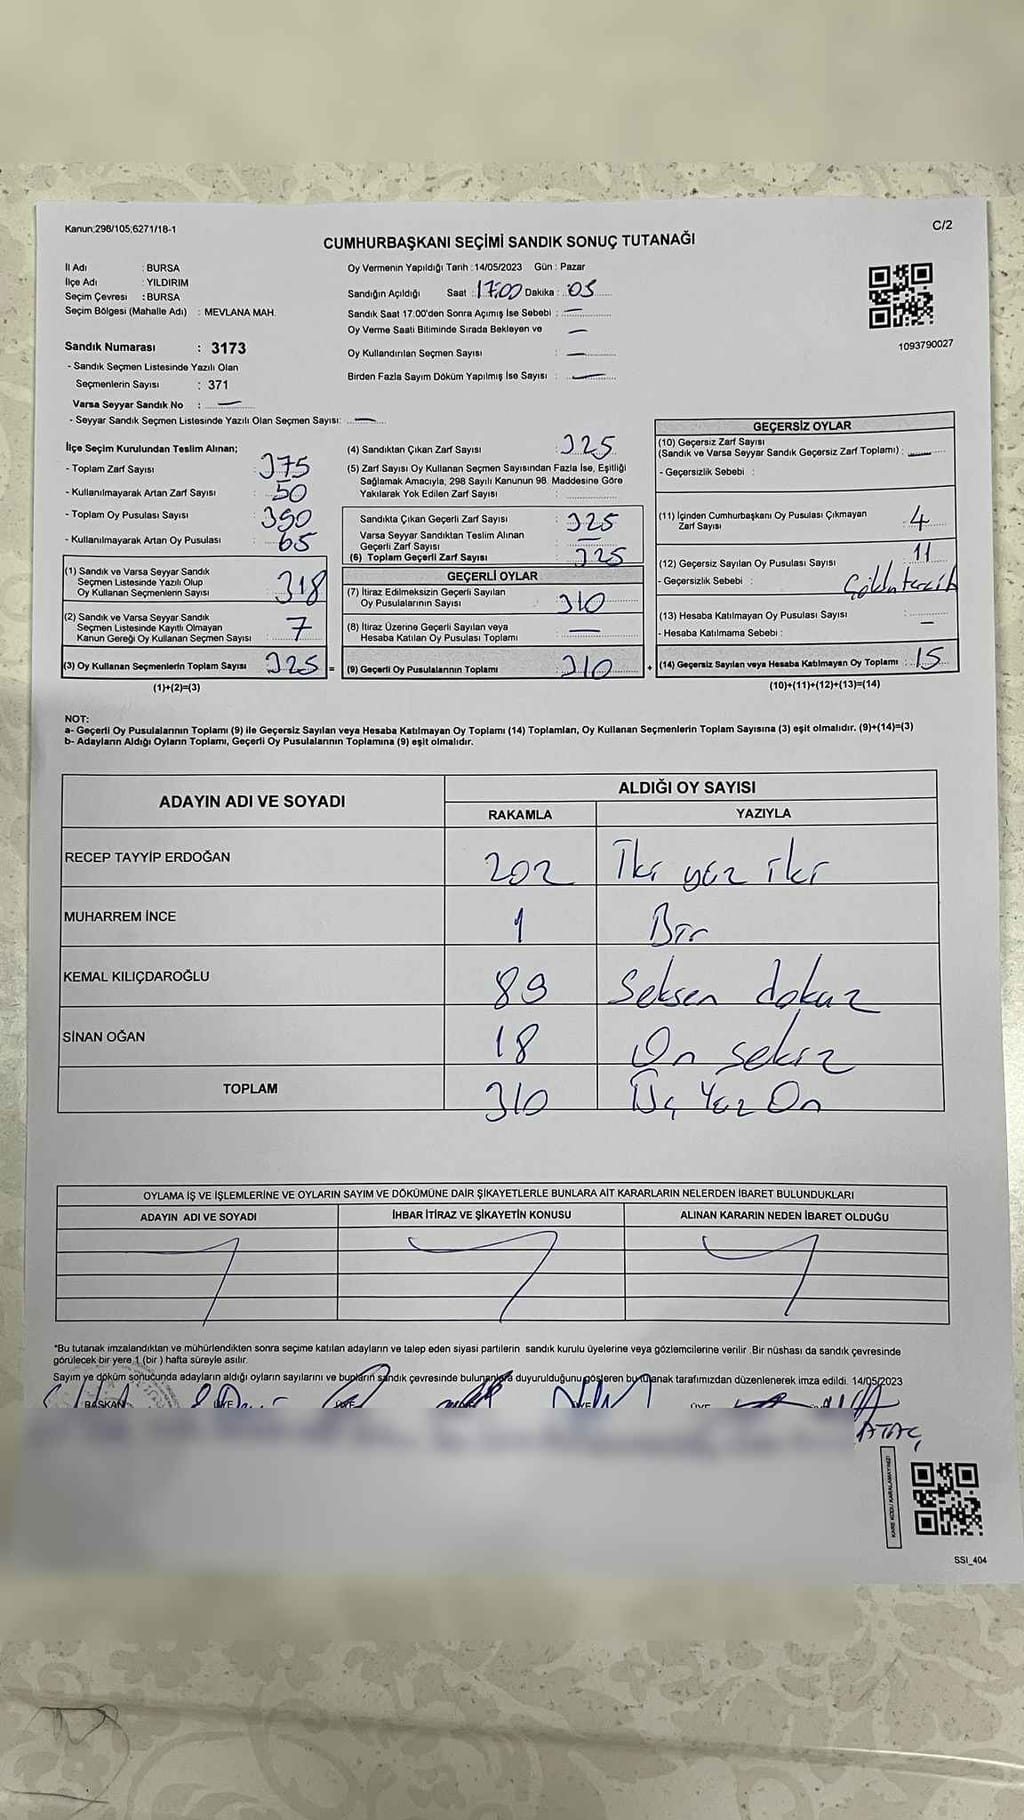 Kanun;298/105,6271/18-1
C/2
CUMHURBAŞKANI SEÇİMİ SANDIK SONUÇ TUTANAĞI
İl Adı : BURSA
İlçe Adı : YILDIRIM
Seçim Çevresi : BURSA
Seçim Bölgesi (Mahalle Adı) : MEVLANA MAH.
Sandık Numarası : 3173
- Sandık Seçmen Listesinde Yazılı Olan
Seçmenlerin Sayısı : 371
Varsa Seyyar Sandık No : —
- Seyyar Sandık Seçmen Listesinde Yazılı Olan Seçmen Sayısı: —
Oy Vermenin Yapıldığı Tarih : 14/05/2023 Gün : Pazar
Sandığın Açıldığı Saat : 17:00 Dakika : 05
Sandık Saat 17.00'den Sonra Açımış İse Sebebi : —
Oy Verme Saati Bitiminde Sırada Bekleyen ve —
Oy Kullandırılan Seçmen Sayısı : —
Birden Fazla Sayım Döküm Yapılmış İse Sayısı : —
1093790027
İlçe Seçim Kurulundan Teslim Alınan;
- Toplam Zarf Sayısı : 375
- Kullanılmayarak Artan Zarf Sayısı : 50
- Toplam Oy Pusulası Sayısı : 390
- Kullanılmayarak Artan Oy Pusulası : 65
(1) Sandık ve Varsa Seyyar Sandık
Seçmen Listesinde Yazılı Olup
Oy Kullanan Seçmenlerin Sayısı 318
(2) Sandık ve Varsa Seyyar Sandık
Seçmen Listesinde Kayıtlı Olmayan
Kanun Gereği Oy Kullanan Seçmen Sayısı 7
(3) Oy Kullanan Seçmenlerin Toplam Sayısı 325 =
(1)+(2)=(3)
(4) Sandıktan Çıkan Zarf Sayısı : 325
(5) Zarf Sayısı Oy Kullanan Seçmen Sayısından Fazla İse, Eşitliği
Sağlamak Amacıyla, 298 Sayılı Kanunun 98. Maddesine Göre
Yakılarak Yok Edilen Zarf Sayısı :
Sandıkta Çıkan Geçerli Zarf Sayısı : 325
Varsa Seyyar Sandıktan Teslim Alınan
Geçerli Zarf Sayısı : —
(6) Toplam Geçerli Zarf Sayısı : 325
GEÇERLİ OYLAR
(7) İtiraz Edilmeksizin Geçerli Sayılan
Oy Pusulalarının Sayısı : 310
(8) İtiraz Üzerine Geçerli Sayılan veya
Hesaba Katılan Oy Pusulası Toplamı : —
(9) Geçerli Oy Pusulalarının Toplamı : 310 +
GEÇERSİZ OYLAR
(10) Geçersiz Zarf Sayısı
(Sandık ve Varsa Seyyar Sandık Geçersiz Zarf Toplamı) : —
- Geçersizlik Sebebi :
(11) İçinden Cumhurbaşkanı Oy Pusulası Çıkmayan
Zarf Sayısı : 4
(12) Geçersiz Sayılan Oy Pusulası Sayısı : 11
- Geçersizlik Sebebi :
(13) Hesaba Katılmayan Oy Pusulası Sayısı : —
- Hesaba Katılmama Sebebi :
(14) Geçersiz Sayılan veya Hesaba Katılmayan Oy Toplamı : 15
(10)+(11)+(12)+(13)=(14)
NOT:
a- Geçerli Oy Pusulalarının Toplamı (9) ile Geçersiz Sayılan veya Hesaba Katılmayan Oy Toplamı (14) Toplamları, Oy Kullanan Seçmenlerin Toplam Sayısına (3) eşit olmalıdır. (9)+(14)=(3)
b- Adayların Aldığı Oyların Toplamı, Geçerli Oy Pusulalarının Toplamına (9) eşit olmalıdır.
ADAYIN ADI VE SOYADI
ALDIĞI OY SAYISI
RAKAMLA YAZIYLA
RECEP TAYYİP ERDOĞAN 202 İki yüz iki
MUHARREM İNCE 1 Bir
KEMAL KILIÇDAROĞLU 89 Seksen dokuz
SİNAN OĞAN 18 On sekiz
TOPLAM 310 Üç Yüz On
OYLAMA İŞ VE İŞLEMLERİNE VE OYLARIN SAYIM VE DÖKÜMÜNE DAİR ŞİKAYETLERLE BUNLARA AİT KARARLARIN NELERDEN İBARET BULUNDUKLARI
ADAYIN ADI VE SOYADI İHBAR İTİRAZ VE ŞİKAYETİN KONUSU ALINAN KARARIN NEDEN İBARET OLDUĞU
*Bu tutanak imzalandıktan ve mühürlendikten sonra seçime katılan adayların ve talep eden siyasi partilerin sandık kurulu üyelerine veya gözlemcilerine verilir .Bir nüshası da sandık çevresinde
görülecek bir yere 1 (bir ) hafta süreyle asılır.
Sayım ve döküm sonucunda adayların aldığı oyların sayılarını ve bunların sandık çevresinde bulunanlara duyurulduğunu gösteren bu tutanak tarafımızdan düzenlenerek imza edildi. 14/05/2023
BAŞKAN ÜYE ÜYE ÜYE ÜYE
ATAÇ
KARE KODU KARALAMAYINIZ!
SSI_404